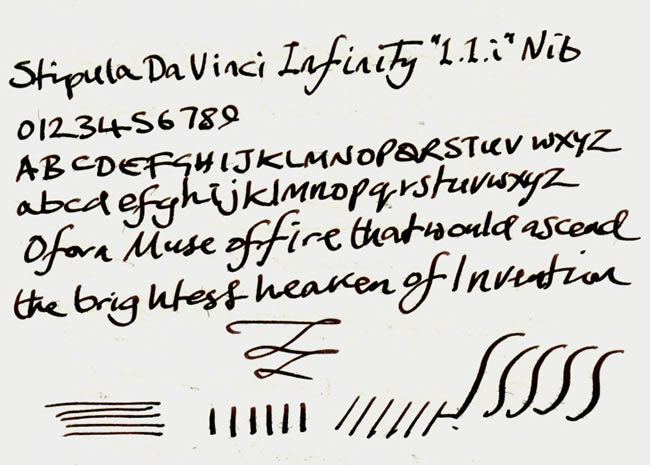 Stipula Da Vinci Infinity "1.1.i" Nib
0123456789
ABCDEFGHIJKLMNOPQRSTUV WXYZ
abcdefghijklmnopqrstuvwxyz
O for a Muse of fire that would ascend
the brightest heaven of Invention